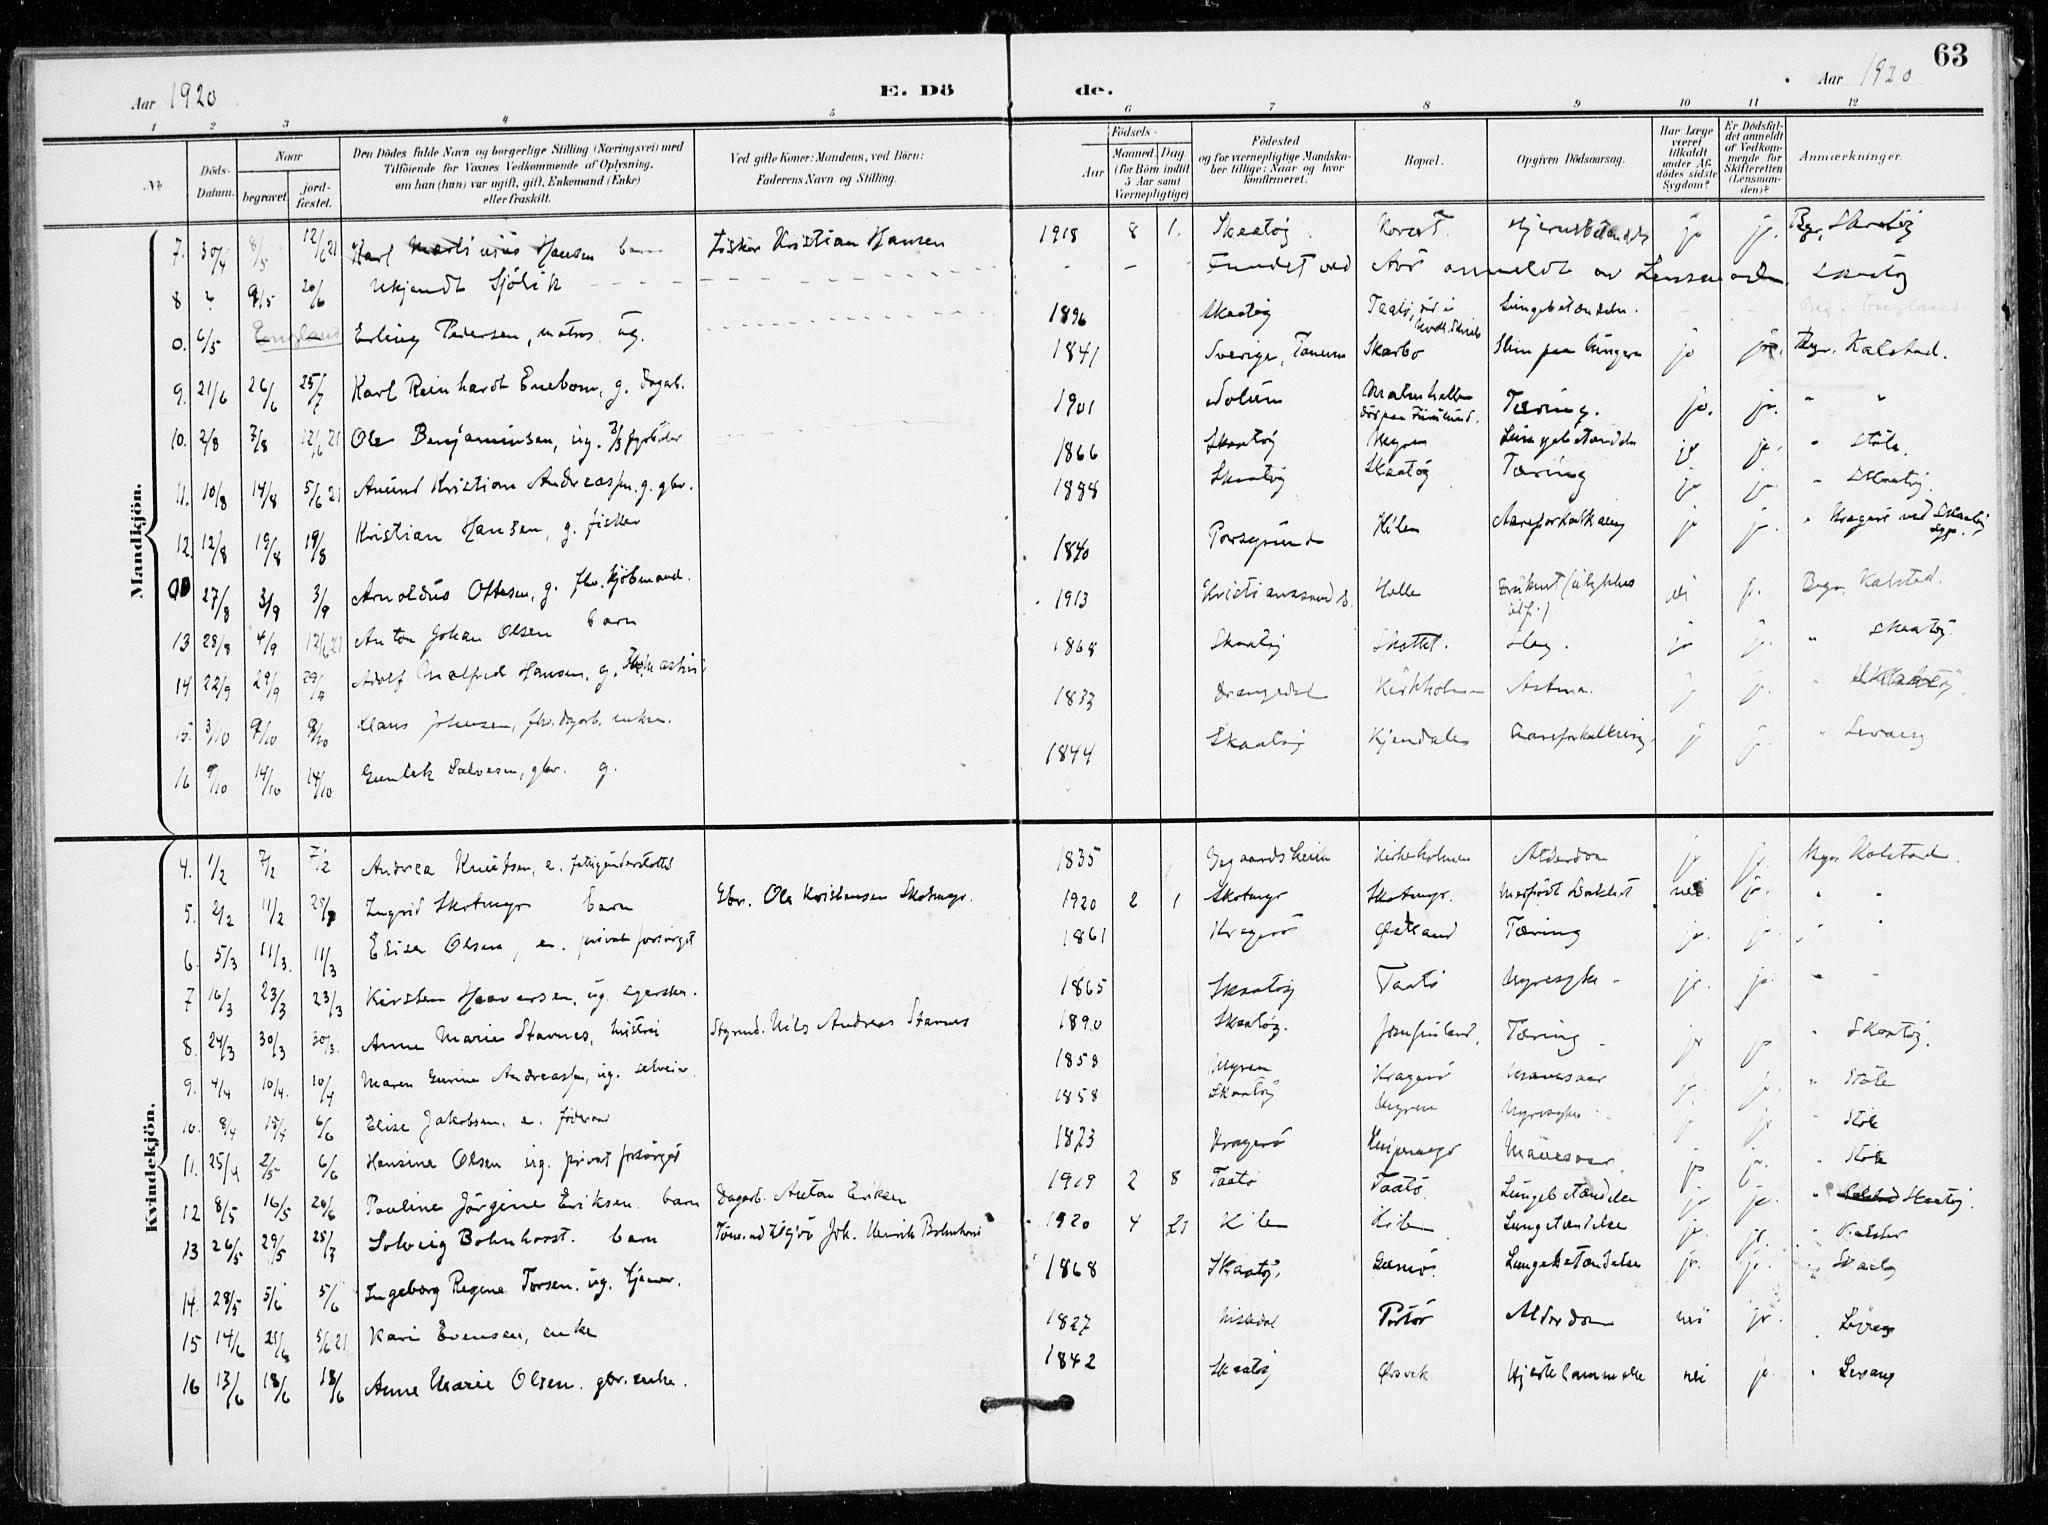 63
Aar 1920
E. Dö
de.
Aar 1920
1 2 3 4 5 6 7 8 9 10 11 12
No
Döds-Datum.
Naar
begravet.
jord-fæstet.
Den Dödes fulde Navn og borgerlige Stilling (Næringsvei) med
Tilföiende for Voxnes Vedkommende af Oplysning,
om han (hun) var ugift, gift, Enkemand (Enke)
eller fraskilt.
Ved gifte Koner: Mandens, ved Börn:
Faderens Navn og Stilling.
Födsels-
Aar
Maaned. Dag
(for Börn indtil
5 Aar samt
Værnepligtige)
Födested
og for værnepligtige Mandska-
ber tillige: Naar og hvor
konfirmeret.
Bopæl.
Opgiven Dödsaarsag.
Har Læge
været
tilkaldt
under Af-
dödes sidste
Sygdom?
Er Dödsfal-
det anmeldt
af Vedkom-
mende for
Skifteretten
(Lensman-
den)?
Anmærkninger.
Mandkjön.
7. 30/4 8/5 12/6 21 Karl Hansen barn Fisker Kristian Hansen 1918 8 1. Skaatøy ja ja. Skaatøy
8 ? 9/5 20/6 Ukjendt Sjölik Fundet ved anmeldt av Lensmanden Skaatøy
0. 6/5 England Erling Pedersen, matros ug. 1896 Skaatøy Taatø, Lungebetændelse. England
9. 21/6 26/6 25/7 Karl Reinhardt Enebom, g. dagarb. 1841 Sverige, Tanum Skarbo ja ja. Kalstad.
10. 2/8 7/8 12/6 21 Ole Benjaminsen, ug. 1901 Solum Tæring. ja. ja. " "
11. 10/8 14/8 5/6 21 Amund Kristian Andreassen, g. gbr. 1866 Skaatøy Myren Lungebetændelse ja ja. " Støle.
12. 12/8 19/8 19/8 Kristian Hansen, g. fisker 1888 Skaatøy Skaatøy Tæring ja ja. " Skaatøy.
27/8 3/9 3/9 Arnoldus Ottesen, g. fhv. kjöbmand. 1840 Porsgrund Kilen Aareforkalkning ja ja. " Kragerø ved Skaatøy
13 28/8 4/9 12/6 21 Anton Johan Olsen barn 1913 Kristianssund Halle Druknet nei ja. Kalstad.
14 22/9 29/9 29/9 Adolf Malfred Hansen, g. 1868 Skaatøy Slag. ja ja. " Skaatøy.
15. 3/10 9/10 9/10 Klaus Johnsen, fhv. dagarb. enkem. 1833 Drangedal Kirkholmen Astma. ja ja. " Skaatøy.
16 9/10 14/10 14/10 Gunlek Salvesen, gbr. g. 1844 Skaatøy Kjendalen Aareforkalkning. ja ja. " Levang
Kvindekjön.
4. 1/2 7/2 7/2 Andrea Knutsen, e. fattigunderstøttet 1835 Gjaardsheim Kirkeholmen Alderdom ja ja. Kalstad.
5. 2/2 11/2 Ingrid Skotmyr barn Gbr. Ole Kristensen Skotmyr. 1920 2 1 Skotmyr Skotmyr. nei ja. " "
6. 5/3 11/3. 11/3 Elise Olsen, e. privat forsörget 1861 Kragerö Østland Tæring ja. ja. " "
7 16/3 23/3 23/3 Kirsten Haaversen, ug. 1865 Skaatøy Taatö Nyresyke ja. ja. " "
8. 24/3 30/3 30/3. Anne Marie Stavnes, hustru Styrmd. Nils Andreas Stavnes 1890 Skaatøy. Josefinelund. Tæring ja ja " Skaatøy.
9. 4/4 10/4. 10/4 Maren Gurine Andreassen, ug. selveier. 1858 Myren Kragerö Mavesaar ja. ja. " Støle
10. 8/4 15/4 6/6 Elise Jakobsen, e. føderaad 1858 Skaatøy Myren Nyresyke ja ja " Støle
11. 25/4 2/5 6/6 Hansine Olsen ug. privat forsörget 1873 Kragerö Mavesaar. ja ja. " Støle
12 8/5 16/5 20/6 Pauline Jörgine Eriksen. barn Dagarb. Anton Eriksen 1919 2 8 Taatö Taatö Lungebetændelse ja ja. " Skaatøy.
13 26/5 29/5 25/7 Solveig Bohnhorst. barn Joh. Henrik Bohnhorst 1920 4 21 Kilen Kilen Lungebetændelse ja. ja. "
14. 28/5 5/6 5/6 Ingeborg Regine Torsen. ug. tjener. 1868 Skaatøy. Gumö. Lungebetændelse ja. ja. " Skaatøy
15 14/6 5/6 21 Kari Evensen, enke 1827 Nissedal Portör Alderdom nei ja. " Levang
16 13/6 18/6 18/6 Anne Marie Olsen. gbr. enke. 1842 Skaatøy Ørsvik Hjertelammelse nei ja. " Levang